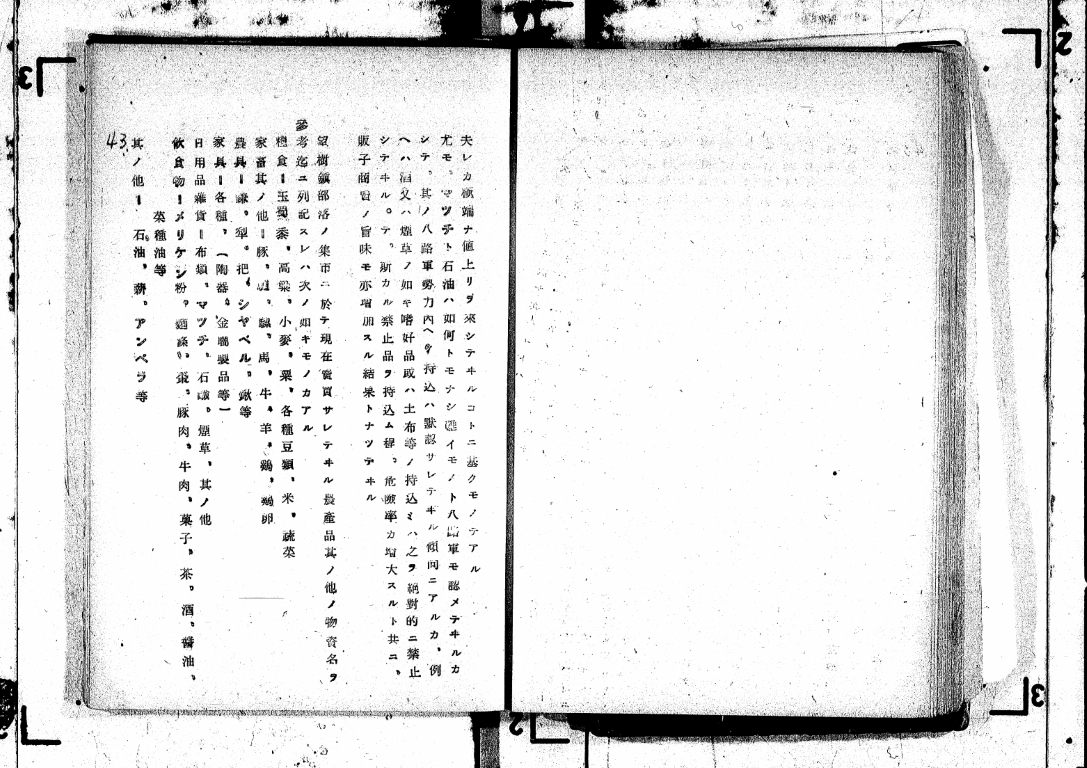 夫レカ極端ナ値上リヲ來シテヰルコトニ基クモノテアル
尤モ、マツチト石油ハ如何トモナシ難イモノト八路軍モ認メテヰルカ
シテ、其ノ八路軍勢力內ヘノ持込ハ默認サレテヰル傾向ニアルカ、例
ヘハ酒又ハ煙草ノ如キ嗜好品或ハ土布等ノ持込ミハ之ヲ絕對的ニ禁止
シテヰル。テ、斯カル禁止品ヲ持込ム程、危險率カ增大スルト共ニ、
販子商賣ノ旨味モ亦增加スル結果トナツテヰル
樹鎭部落ノ集市ニ於テ現在賣買サレテヰル農產品其ノ他ノ物資名ヲ
參考迄ニ列記スレハ次ノ如キモノカアル
糧食ー玉蜀黍、高粱、小麥、粟、各種豆類、米、蔬菜
家畜其ノ他ー豚、騾、馬、牛、羊、鷄、鷄卵
農具ー鎌、犂、把、シヤベル、鍬等
家具ー各種、(陶器、金屬製品等)
日用品雜貨ー布類、マツチ、石鹼、煙草、其ノ他
飮食物ーメリケン粉、棗、豚肉、牛肉、菓子、茶、酒、醬油、
菜種油等
其ノ他ー石油、薪、アンペラ等
43.
3
2
3
2